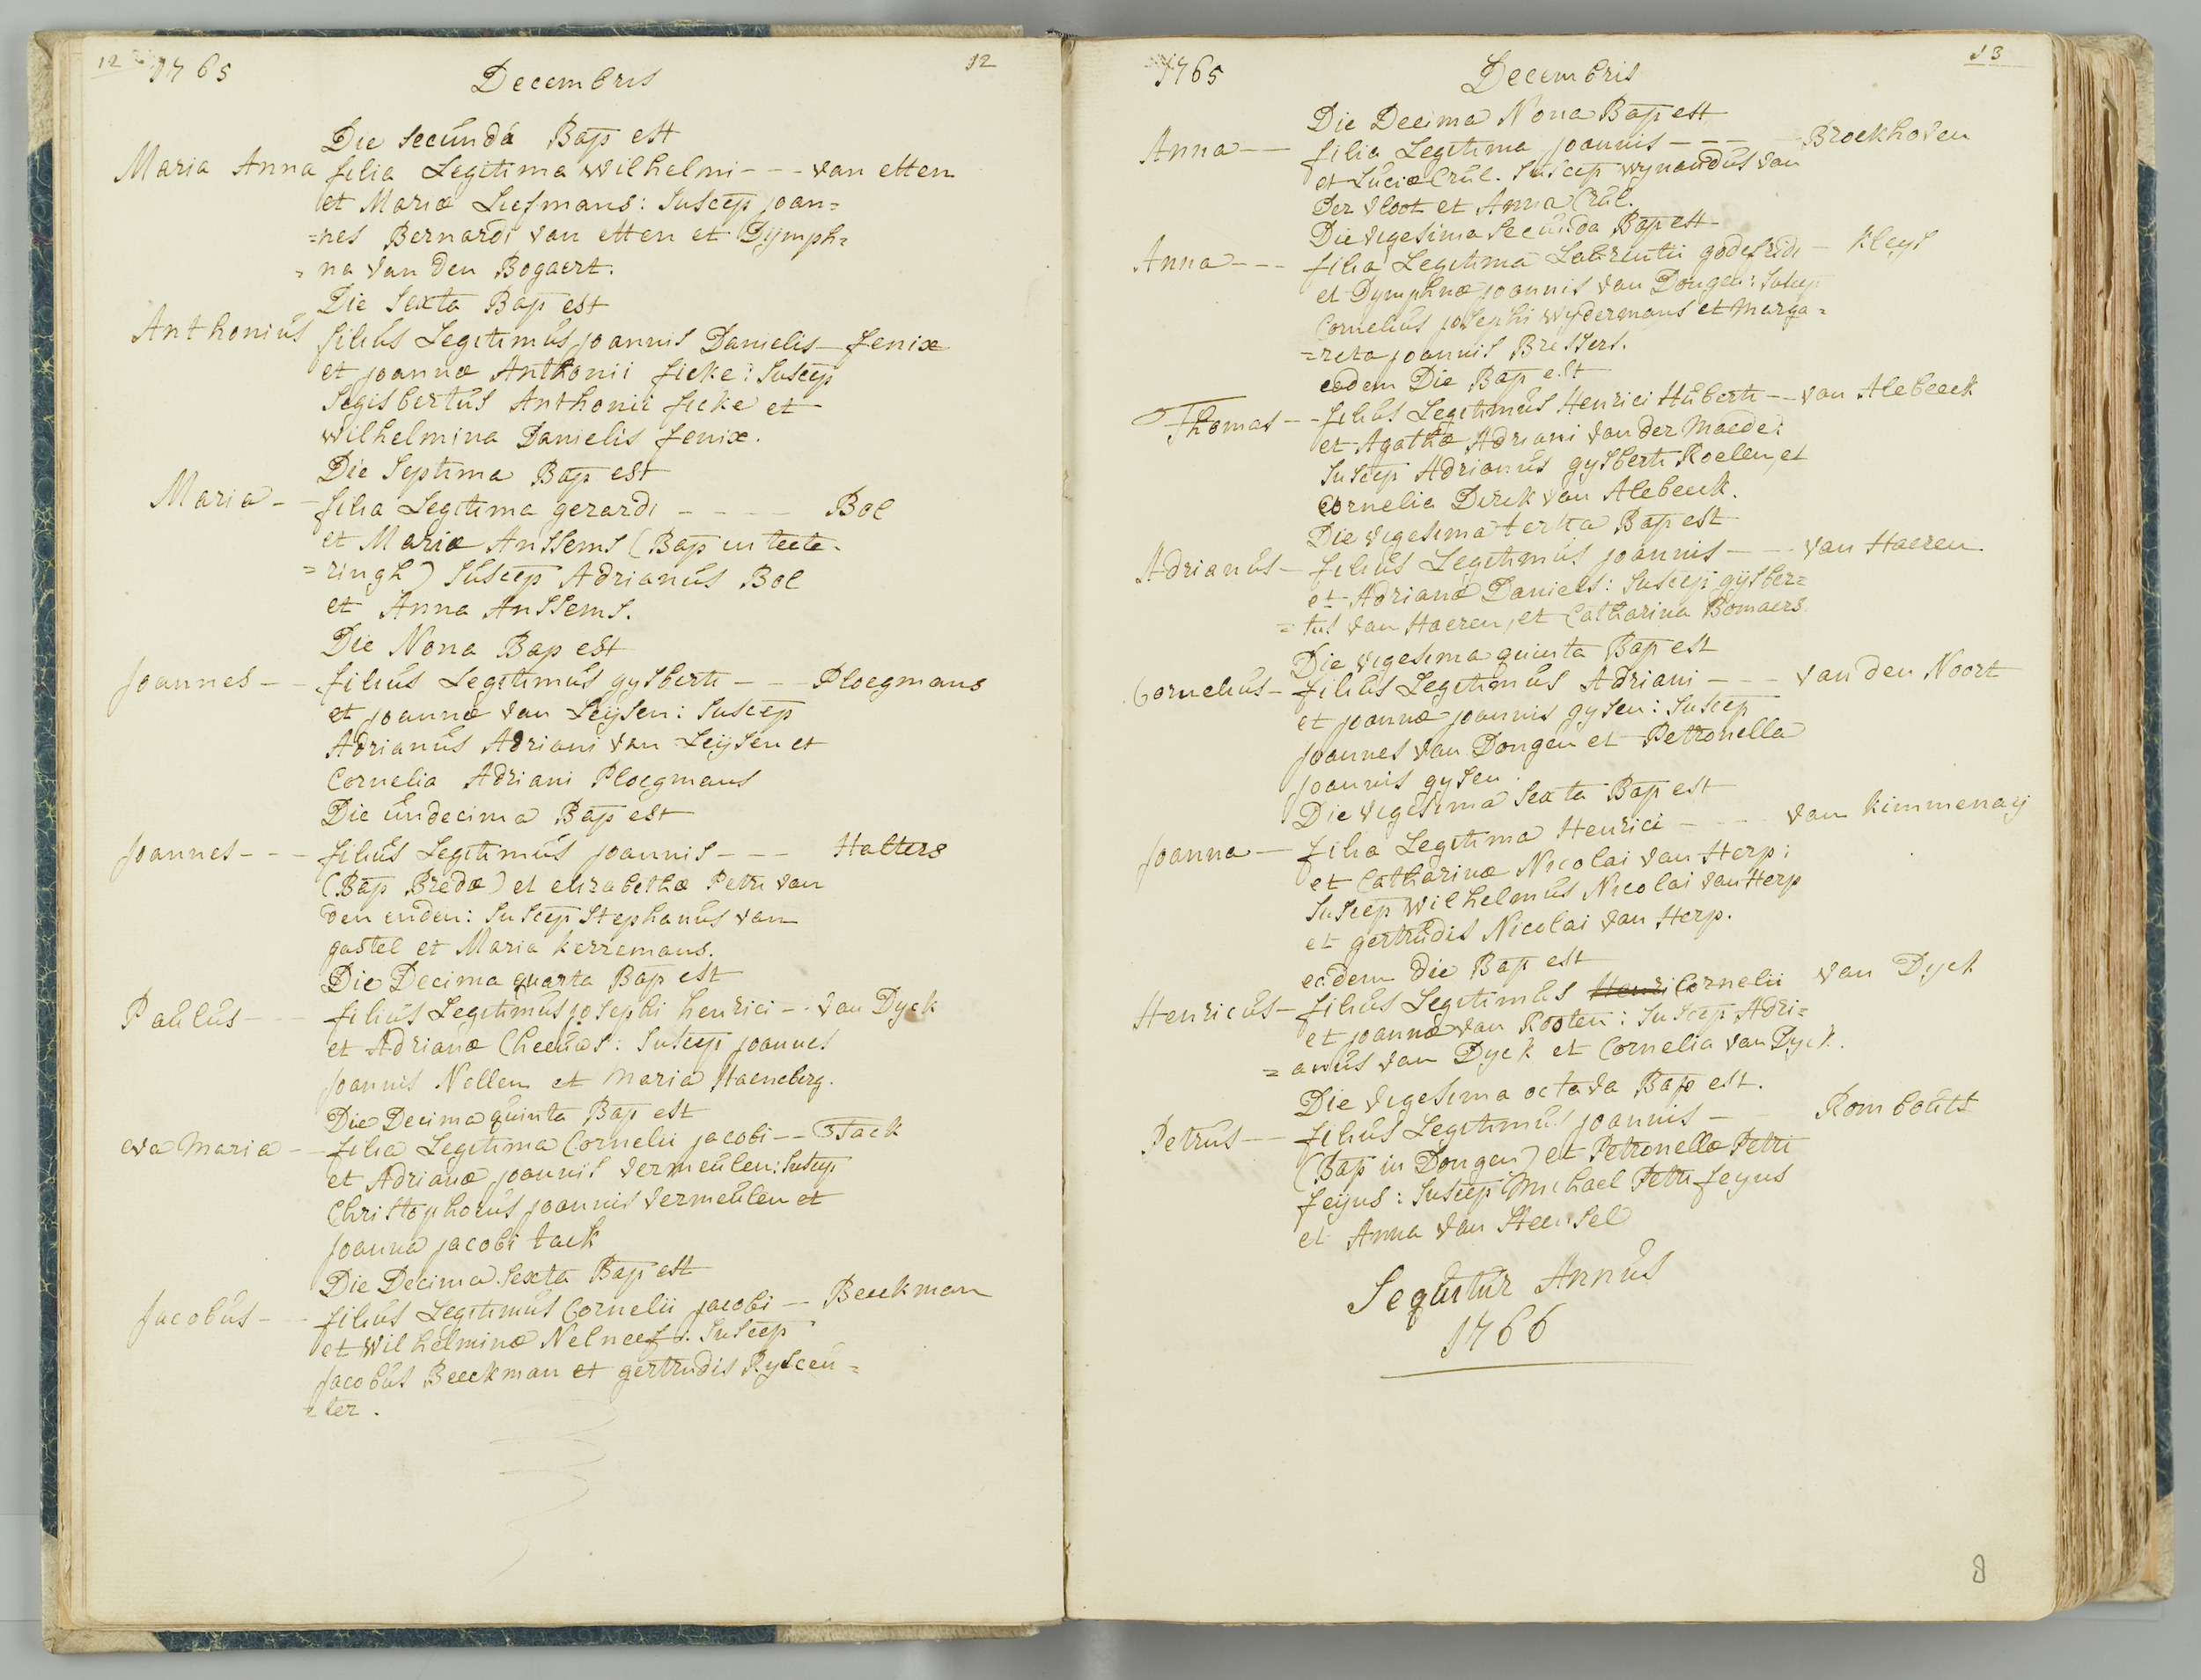 12 1765 Decembris 12
Die Secunda Bap est
Maria Anna filia Legitima Wilhelmi - - - van etten
et Mariæ Liefmans: Suscep joan=
=nes Bernardi van etten et Dymph=
=na van den Bogaert.
Die Sexta Bap est
Anthonius filius Legitimus joannis Danielis - fenix
et joannæ Anthonii ficke: Suscep
Segisbertus Anthonii ficke et
Wilhelmina Danielis fenix.
Die Septima Bap est
Maria - - filia Legitima gerardi - - - - Bol
et Mariæ Anssems (Bap in teete=
=ringh) Suscep Adrianus Bol
et Anna Anssems.
Die Nona Bap est
Joannes - - filius Legitimus gysberti - - - Ploegmans
et joannæ van Leijsen: Suscep
Adrianus Adriani van Leijsen et
Cornelia Adriani Ploegmans
Die undecima Bap est
Joannes - - - filius Legitimus joannis - - - Halters
(Bap Bredæ) et elizabethæ Petri van
den enden: Suscep Stephanus van
gastel et Maria kerremans.
Die Decima quarta Bap est
Paulus - - - filius Legitimus josephi henrici - - van Dyck
et Adrianæ Cheeuws: Suscep joannes
joannis Nellen et Maria Haeneberg.
Die Decima quinta Bap est
eva Maria - - filia Legitima Cornelii jacobi - - Tack
et Adrianæ joannis vermeulen: Suscep
Christophorus joannis vermeulen et
joanna jacobi tack
Die Decima Sexta Bap est
Jacobus - - - filius Legitimus Cornelii jacobi - - Beeckman
et Wilhelminæ Nelneef: Suscep
jacobus Beeckman et gertrudis Rysceu=
=ler.
1765 Decembris 13
Die Decima Nona Bap est
Anna - - filia Legitima joannis - - - - Broekhoven
et Luciæ Crul. Suscep wynandus van
Der vloot et Anna Crul.
Die vigesima Secunda Bap est
Anna - - - filia Legitima Laurentii godefridi - kleijs
et Dymphnæ joannis van Dongen: Suscep
Cornelius josephi wydermans et Marga=
=reta joannis Bressers.
eodem Die Bap est
Thomas - - filius Legitimus Henrici Huberti - - van Alebeeck
et Agathæ Adriani van der Maede:
Suscep Adrianus gysberti Roelen, et
Cornelia Dirck van Alebeeck.
Die vigesima tertia Bap est
Adrianus - filius Legitimus joannis - - - van Haeren
et Adrianæ Daniels: Suscep gijsber=
=tus van Haeren, et Catharina Bomaers
Die vigesima quinta Bap est
Cornelius - filius Legitimus Adriani - - - van den Noort
et joannæ joannis gysen: Suscep
joannes van Dongen et Petronella
joannis gysen.
Die vigesima Sexta Bap est
Joanna - filia Legitima Henrici - - - van kimmenaij
et Catharinæ Nicolai van Herp:
Suscep Wilhelmus Nicolai van Herp
et gertrudis Nicolai van Herp.
eodem Die Bap est
Henricus - filius Legitimus Henri Cornelii van Dyck
et joannæ van Rooten: Suscep Adri=
=anus van Dyck et Cornelia van Dyck.
Die vigesima octava Bap est.
Petrus - - filius Legitimus joannis - Rombouts
(Bap in Dongen) et Petronellæ Petri
feyns: Suscep Michael Petri feyns
et Anna van Heensel
Sequitur Annus
1766
8